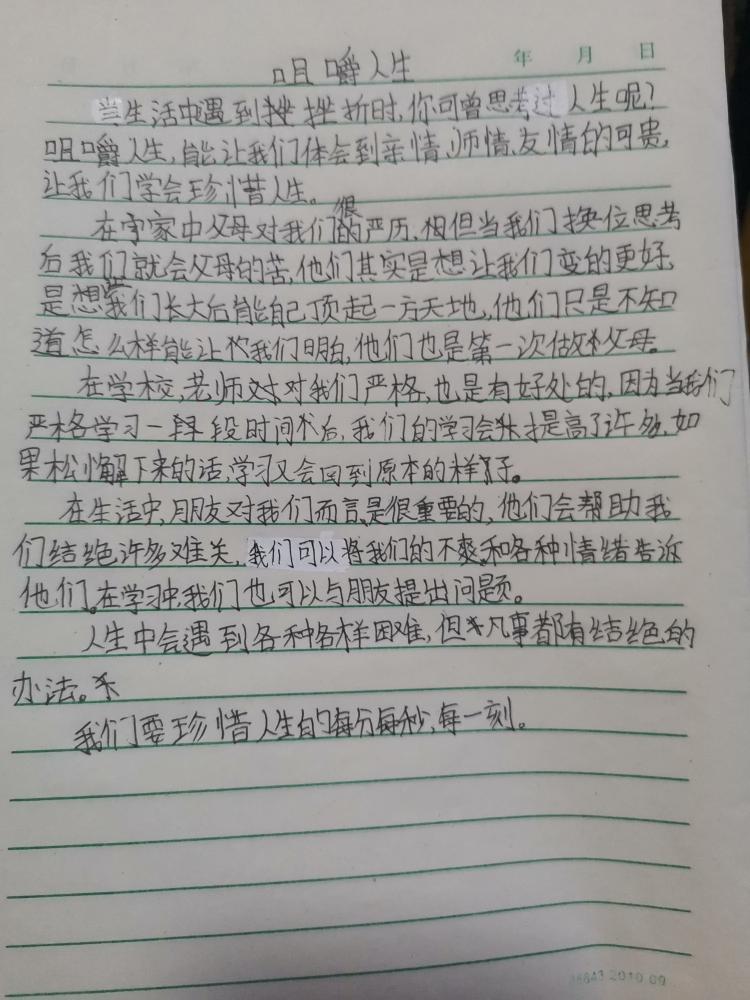 年 月 日
咀嚼人生
当生活中遇到挫挫折时,你可曾思考过人生呢?
咀嚼人生,能让我们体会到亲情、师情、友情的可贵,
让我们学会珍惜人生。
在家中父母对我们很的严历,但当我们换位思考
后我们就会父母的苦,他们其实是想让我们变的更好,
是想我们长大后能自己顶起一方天地,他们只是不知
道怎么样能让我们明白,他们也是第一次做父母。
在学校,老师对对我们严格,也是有好处的,因为当我们
严格学习一段时间后,我们的学习会提高了许多,如
果松懈下来的话,学习又会回到原本的样子。
在生活中,朋友对我们而言是很重要的,他们会帮助我
们结绝许多难关,我们可以将我们的不爽和各种情绪告诉
他们。在学习中,我们也可以与朋友提出问题。
人生中会遇到各种各样困难,但凡事都有结绝的
办法。
我们要珍惜人生的每分每秒,每一刻。